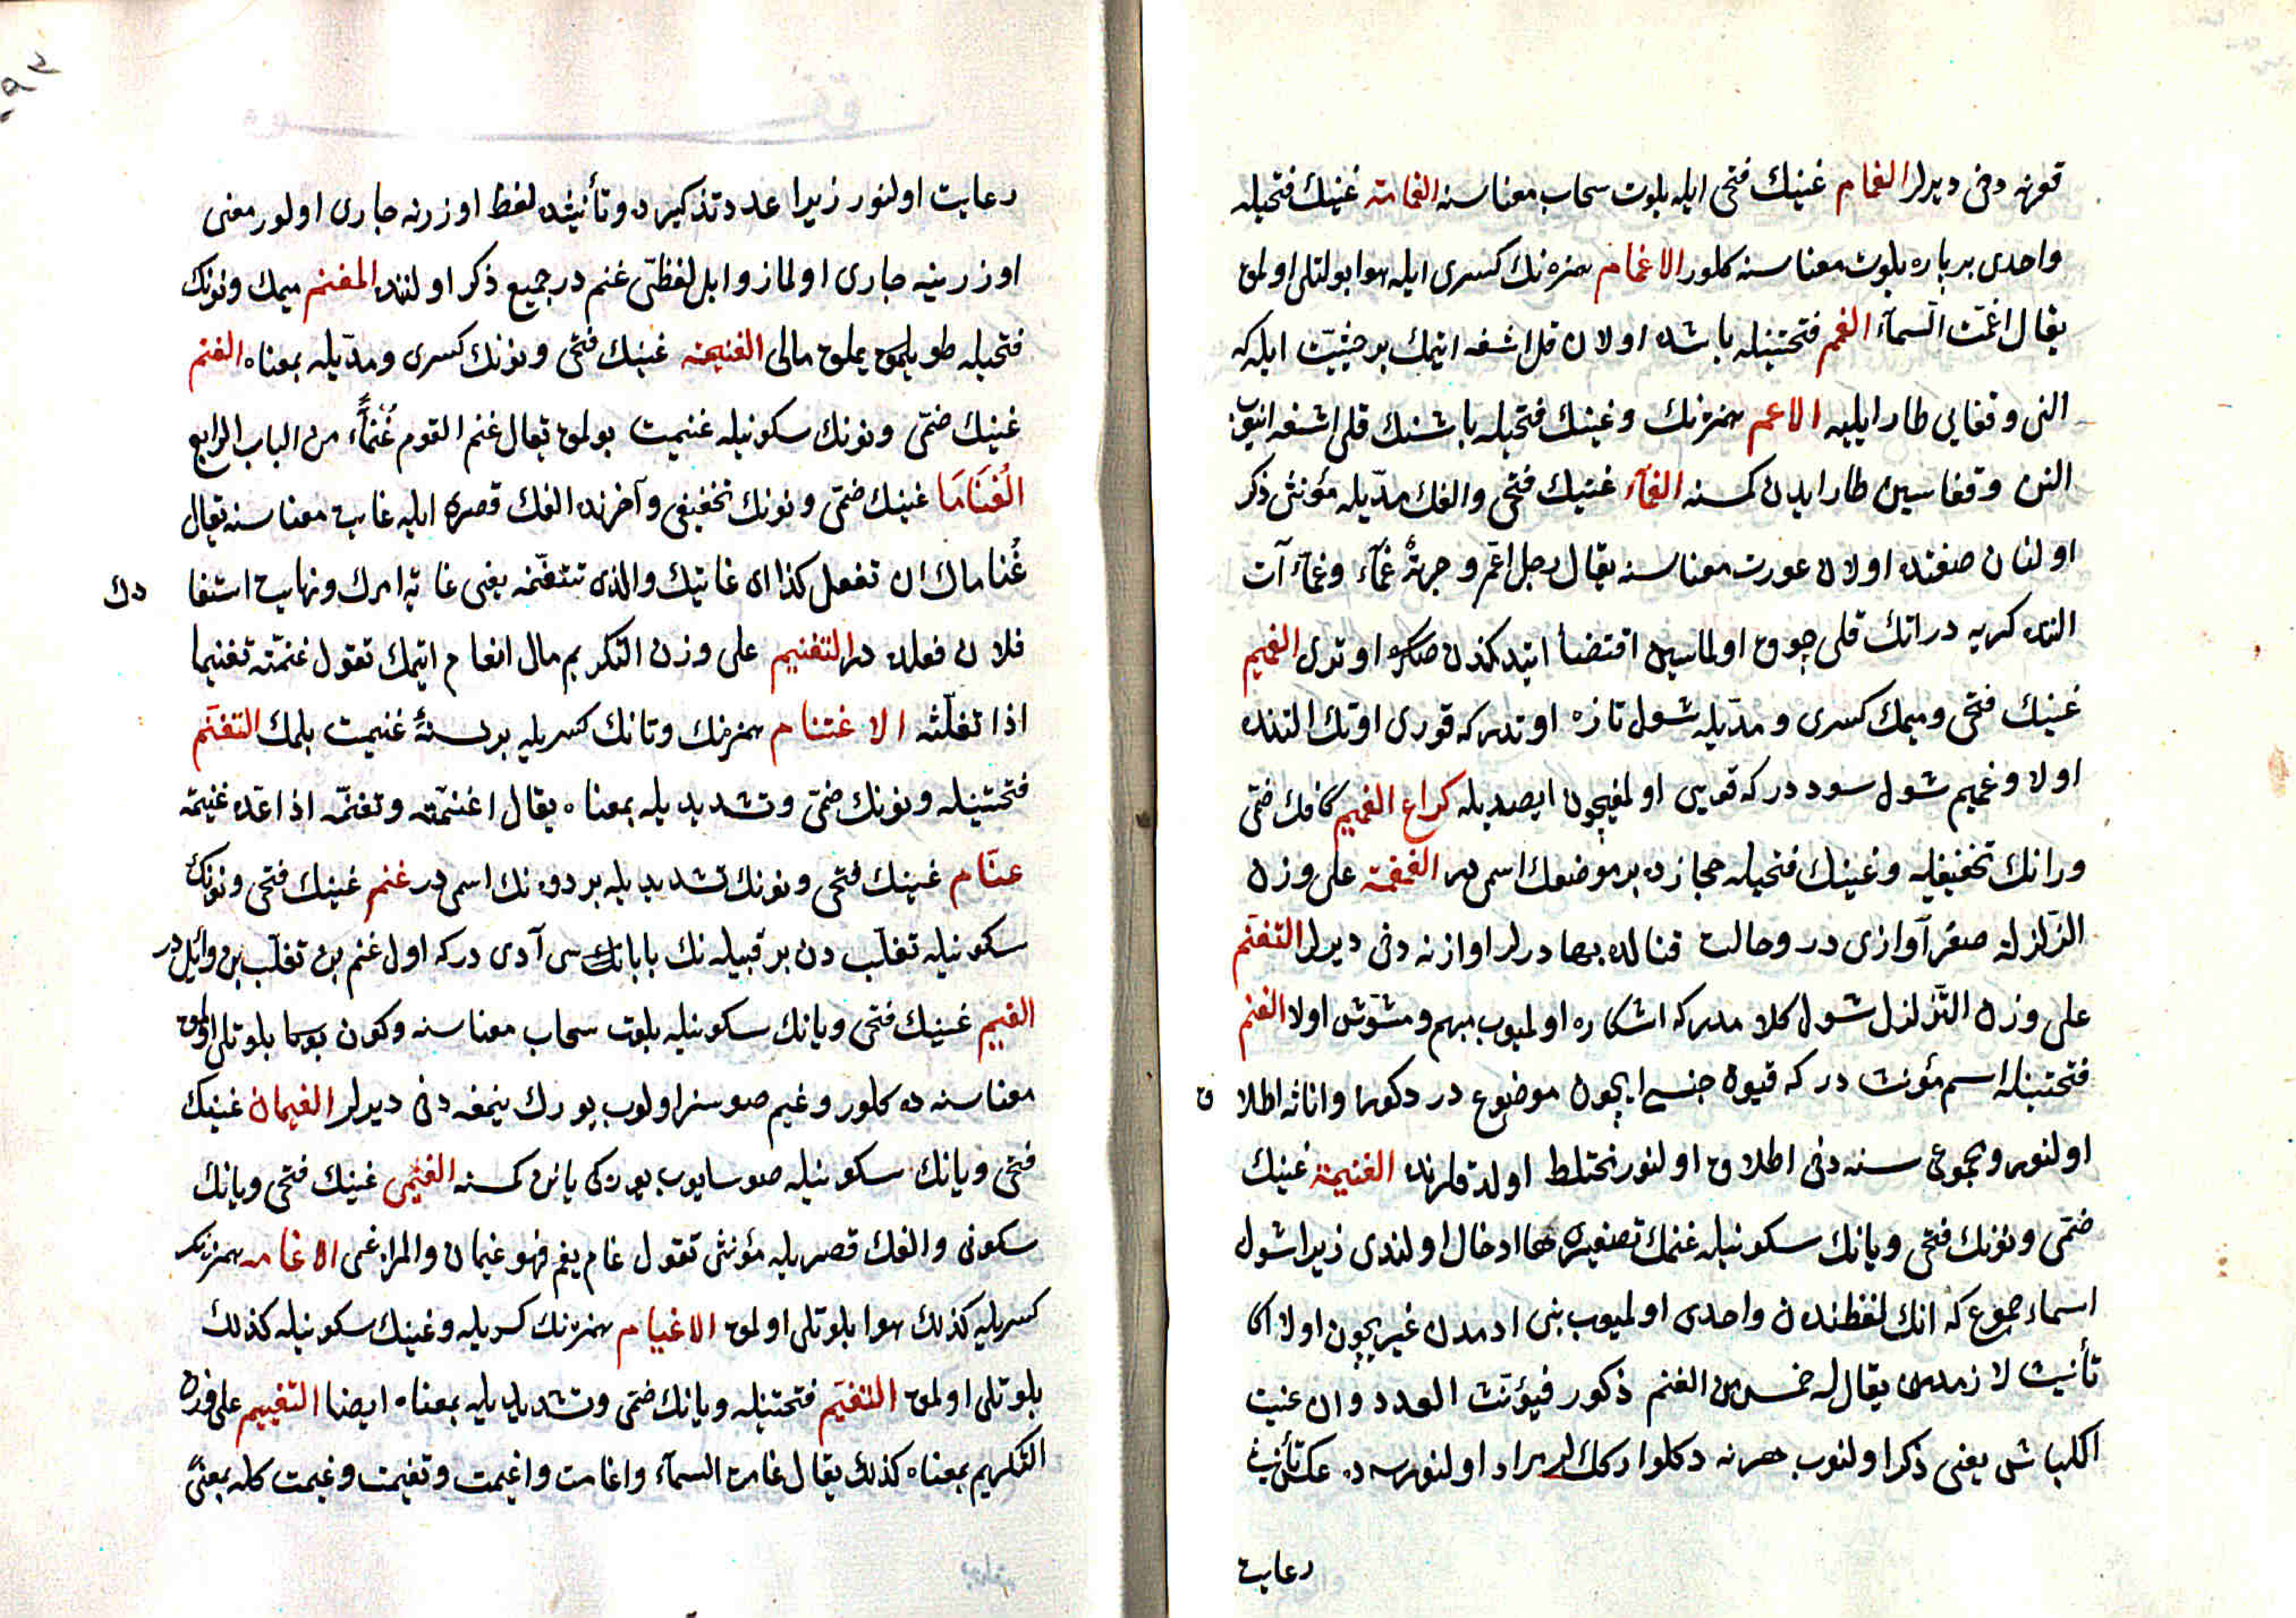 قورنه دخى ديرلر الغمام غينك فتحى ايله بلوت سحاب معناسنه الغمامة غينك فتحيله
واحدى بر پاره بلوت معناسنه كلور الاغمام همزه نك كسرى ايله هوا بولتلى اولمق
يقال اغمّت السمآء الغمم فتحتينله باشده اولان قل اشغه ايتمك بر حيثيّت ايله كه
النى وقفايى طار ايليه الاغم همزه نك وغينك فتحيله باشنك قلى اشغه اينوب
النن وقفاسين طار ايدن كمسنه الغمآء غينك فتحى والفك مدّيله مؤنثى ذكر
اولنان صفتده اولان عورت معناسنه يقال رجل اغم وجبهةٌ غمّآء وغمآء آت
النده كريه در انك قلى چوق اولماسين اقتضا ايتدكندن صكره اوترى الغميم
غينك فتحى وميمك كسرى ومدّيله شول تازه اوتدر كه قورى اوتك التنده
اولا وغميم شول سوددر كه قويى اولمغيچون ايصيديله كراع الغميم كافك ضمّى
ورانك تخفيفيله وغينك فتحيله حجازده بر موضعك اسمى در الغمغمة على وزن
الزّلزلة صغر آوازى در وحالت قتالده بهادرلر اوازنه دخى ديرلر التغمغم
على وزن التّزلزل شول كلامدر كه اشكاره اولميوب مبهم ومشوّش اولا الغنم
فتحتينله اسم مؤنث در كه قيون جنسى ايچون موضوع در ذكورا واناثه اطلا ق
اولنور ومجموعى سنه دخى اطلاق اولنور مختلط اولدقلرنده الغنيمة غينك
ضمّى ونونك فتحى ويانك سكونيله غنمك تصغيره ها ادخال اولندى زيرا شول
اسماء جموع كه انك لفظندن واحدى اولميوب بنى ادمدن غير يچون اولا اكا
تأنيث لازمدر يقال له خمس من الغنم ذكور فيؤنّث العدد وان عنيت
الكباش يعنى ذكر اولنوب هرنه دكلو اركك لر مراد اولنورسه ده عكس تأنيث
رعايت
رعايت اولنور زيرا عدد تذكيرده وتأنيثده لفظ اوزرنه جارى اولور معنى
اوزرينه جارى اولماز وابل لفظى غنم در جميع ذكر اولننده المغنم ميمك ونونك
فتحيله طويلمق يملق مالى الغنيمة غينك فتحى ونونك كسرى ومدّيله بمعناه الغنم
غينك ضمّى ونونك سكونيله غنيمت بولمق تقال غنم القوم غُنماً من الباب الرابع
الغُنَامَا غينك ضمّى ونونك تخفيفى وآخرنده الفك قصره ايله غايت معناسنه تقال
غُناماك ان تفعل كذا اى غايتك والذى تتغنّمه يعنى غاية امرك ونهايت اشتغا دك
فلان فعلده در التغنيم على وزن التكريم مال انعام ايتمك تقول غنّمته تغنيما
اذا نفلّته الاغتنام همزه نك وتانك كسريله بر نسنهٔ غنيمت بلمك التغنّم
فتحتينله ونونك ضمّى وتشديديله بمعناه يقال اغتنمته وتغنّمه اذا عدّه غنيمة
غنّام غينك فتحى ونونك تشديديله بر دوه نك اسمى در غنم غينك فتحى ونونك
سكونيله تغلب دن بر قبيله نك بابالرى سى آدى در كه اول غنم بن تغلب بن وائل در
الغيم غينك فتحى ويانك سكونيله بلوت سحاب معناسنه وكون بوسا بلوتلى اولمق
معناسنه ده كلور وغيم صوسز اولوب يورك ينمغه دخى ديرلر الغيمان غينك
فتحى ويانك سكونيله صوسايوب يوركى يانن كمسنه الغيمى غينك فتحى ويانك
سكونى والفك قصريله مؤنثى تقول غام يغيم فهو غيمان والمرأة غيمى الاغامه همزه نك
كسريله كذلك هوا بلوتلى اولمق الاغيام همزه نك كسريله وغينك سكونيله كذلك
بلوتلى اولمق التغيّم فتحتينله ويانك ضمّى وتشديديله بمعناه ايضا التغييم على وزن
التكريم بمعناه كذلك يقال غامت السمآء واغامت واغيمت وتغيمت وغيمت كله بمعنىً